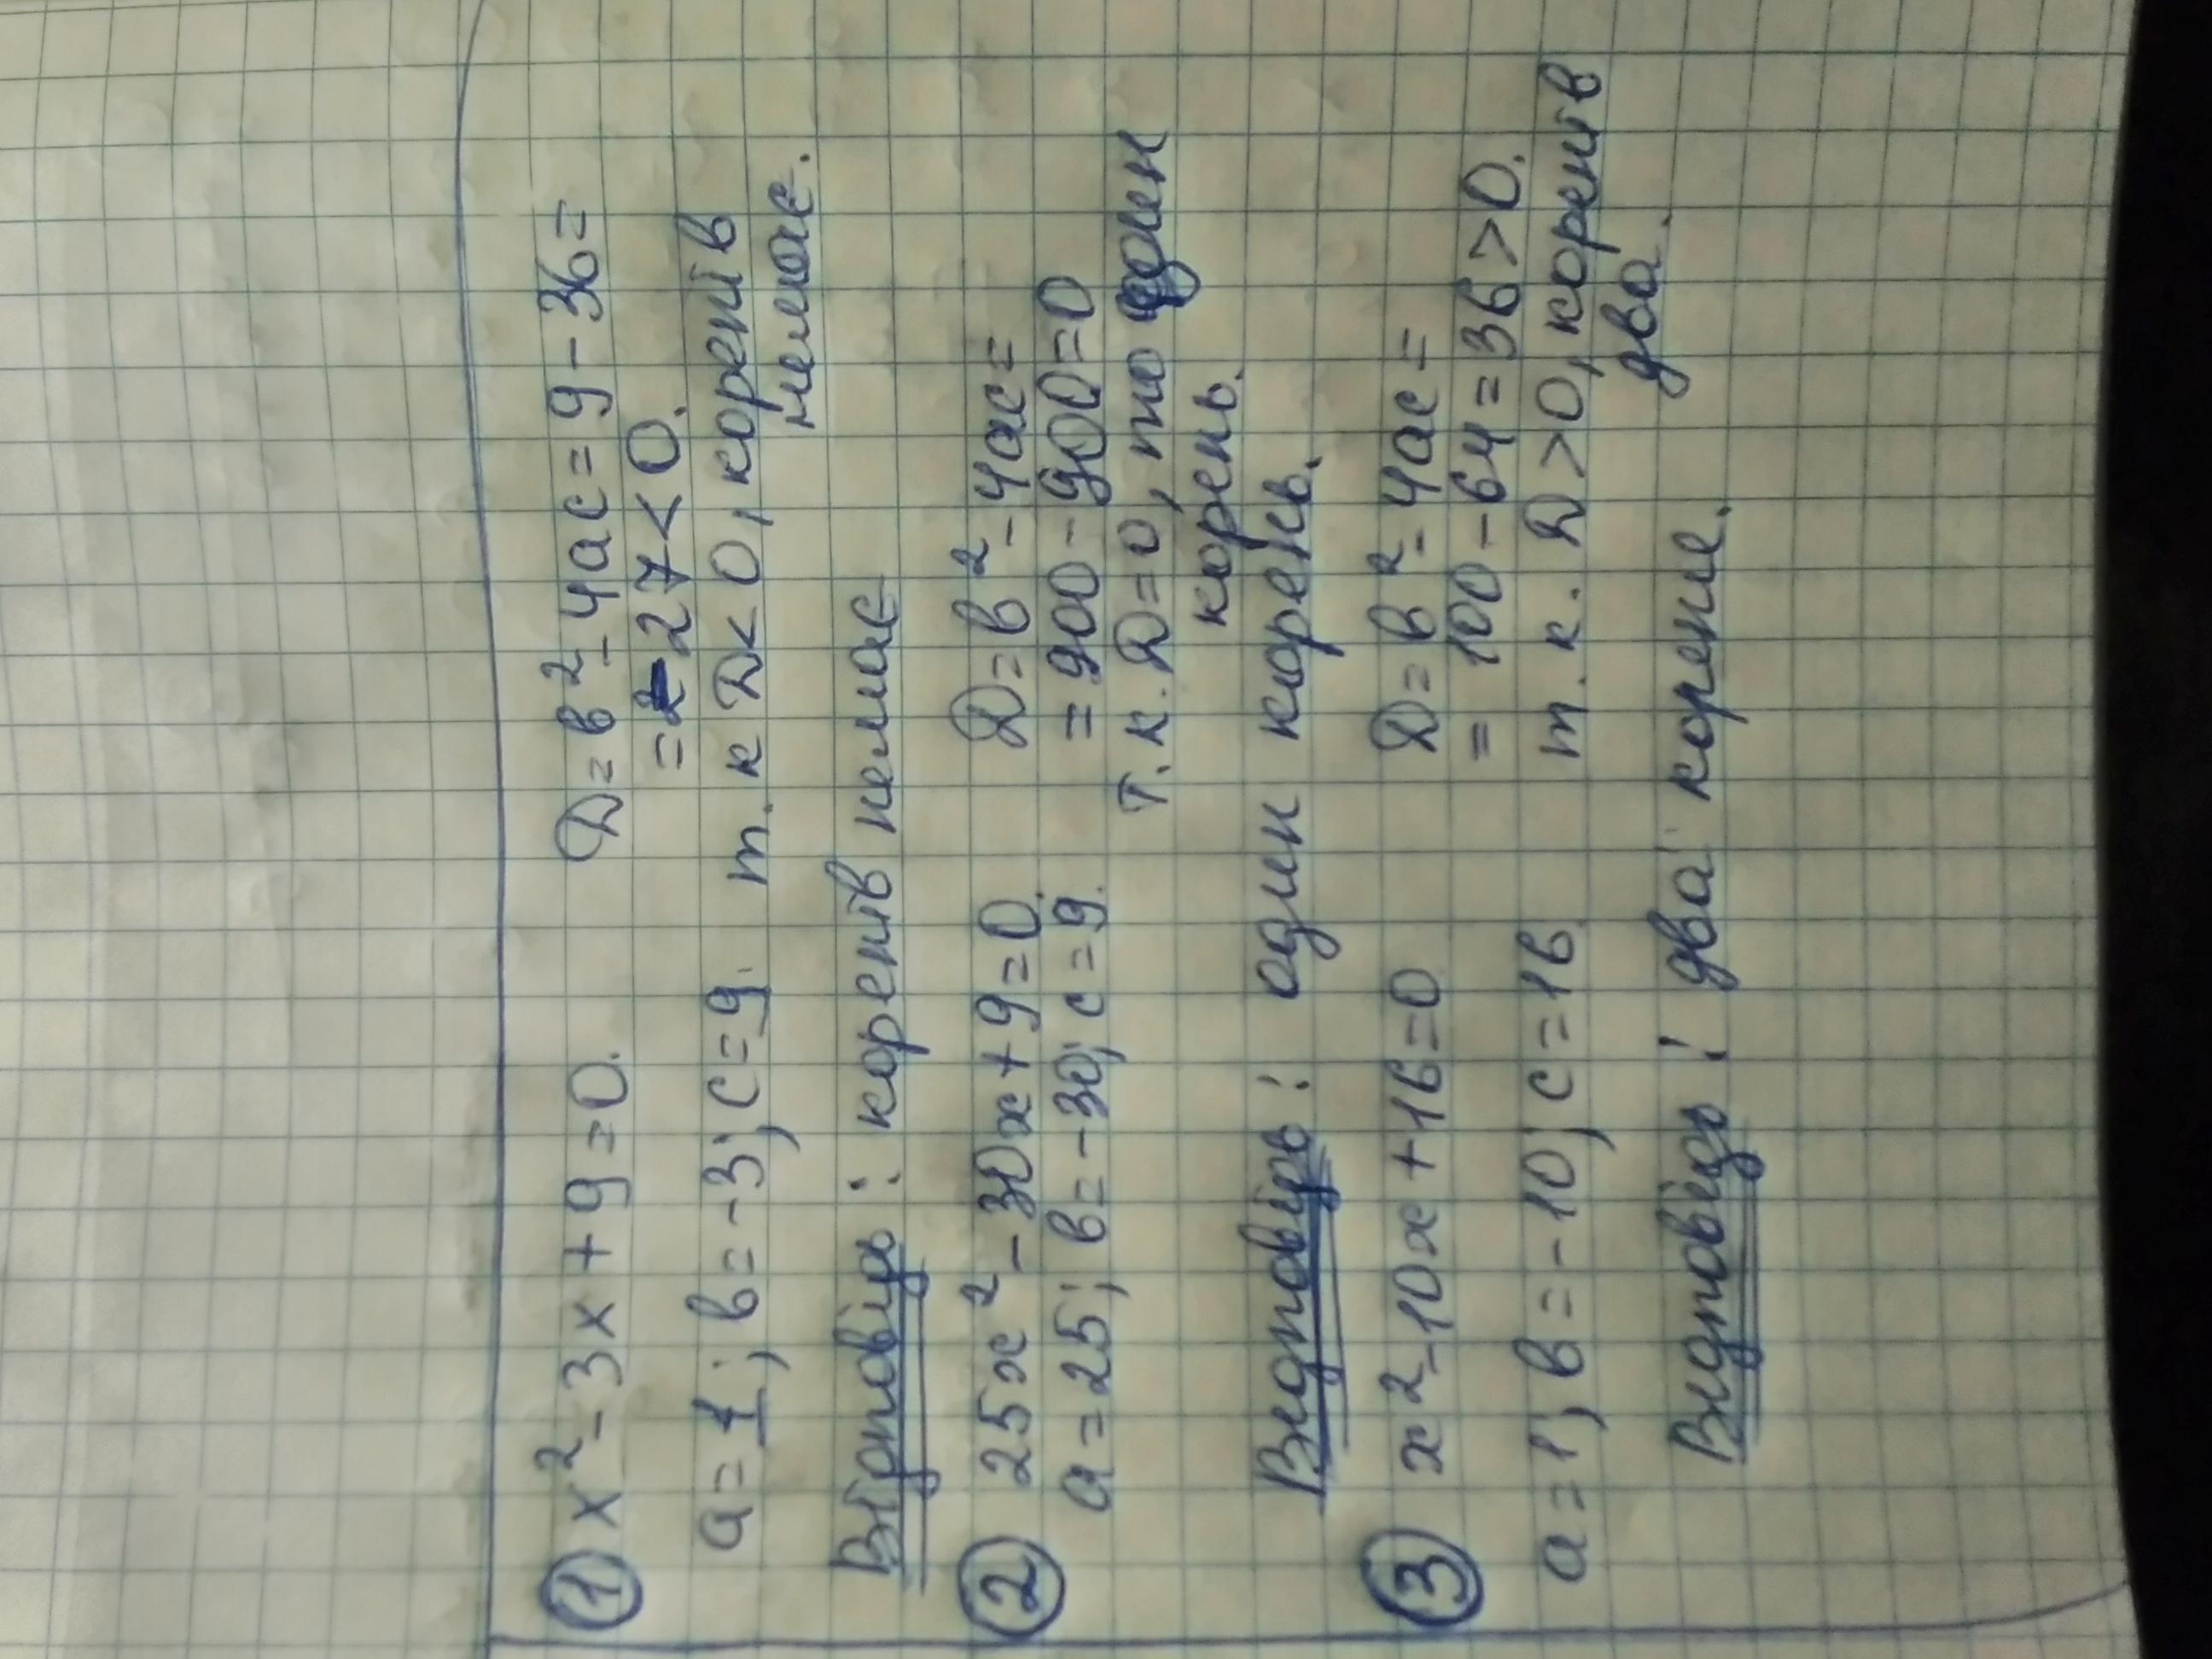 ① x² - 3x + 9 = 0.
D = в² - 4ac = 9 - 36 =
= -27 < 0.
a = 1; в = -3; c = 9.
т. к D < 0, коренів
немає.
Відповідь: коренів немає
② 25x² - 30x + 9 = 0.
D = в² - 4ac =
a = 25; в = -30; c = 9.
= 900 - 900 = 0
т. к. D = 0, то один
корень.
Відповідь: один корень.
③ x² - 10x + 16 = 0
D = в² - 4ac =
= 100 - 64 = 36 > 0.
a = 1; в = -10; c = 16
т. к. D > 0, коренів
два.
Відповідь: два корене.